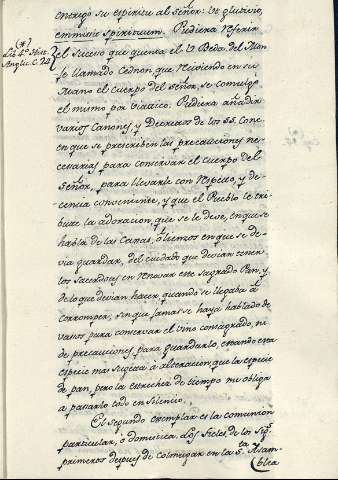 entregó su espiritu al Señor: ut glutivio,
emmisit spiritum. Pudiera referir
(*)
Lib. 4º Hist.
Anglic. C. 24.
el suceso que quenta el V. Beda del Mon
je llamado Cednon que reciviendo en su
Mano el cuerpo del Señor, se comulgó
el mismo por viatico. Pudiera añadir
varios Canones, y Decretos de los SS. Conc.
en que se prescriben las precauciones ne-
cesarias para conservar el cuerpo del
Señor, para llevarle con respecto, y de-
cencia conveniente, y que el Pueblo le tri-
bute la adoracion, que se le deve, en que se
habla de las Caxas, en que se de-
via guardar, del cuidado que devian tener
los sacerdotes en renovar este sagrado Pan, y
de lo que devian hacer quando se llegaba á
corromper, sin que jamas se haya hablado de
vasos para conservar el vino consagrado, ni
de precauciones para guardarlo, estando esta
especie mas sugeta á alteracion, que la especie
de pan, pero la estrechez de tiempo me obliga
a pasarlo todo en silencio.
El segundo exemplar es la comunion
particular, o domestica. Los Fieles de los Sig.s
primeros despues de comulgar en la S.ta Asam-
blea